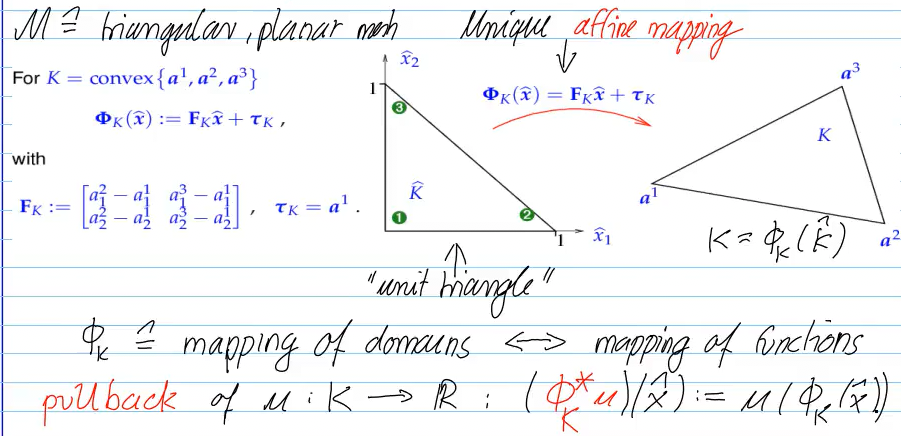 M ≙ triangular, planar mesh Unique affine mapping
For K = convex{a¹, a², a³}
Φ_K(x̂) := F_K x̂ + τ_K ,
with
F_K := [a₁² − a₁¹ a₁³ − a₁¹
a₂² − a₂¹ a₂³ − a₂¹] , τ_K = a¹ .
x̂₂
1
3
K̂
1
2
1
x̂₁
Φ_K(x̂) = F_K x̂ + τ_K
a³
K
a¹
a²
K = Φ_K(K̂)
"unit triangle"
Φ_K ≙ mapping of domains ↔ mapping of functions
pullback of u : K → ℝ : (Φ_K^* u)(x̂) := u(Φ_K(x̂))